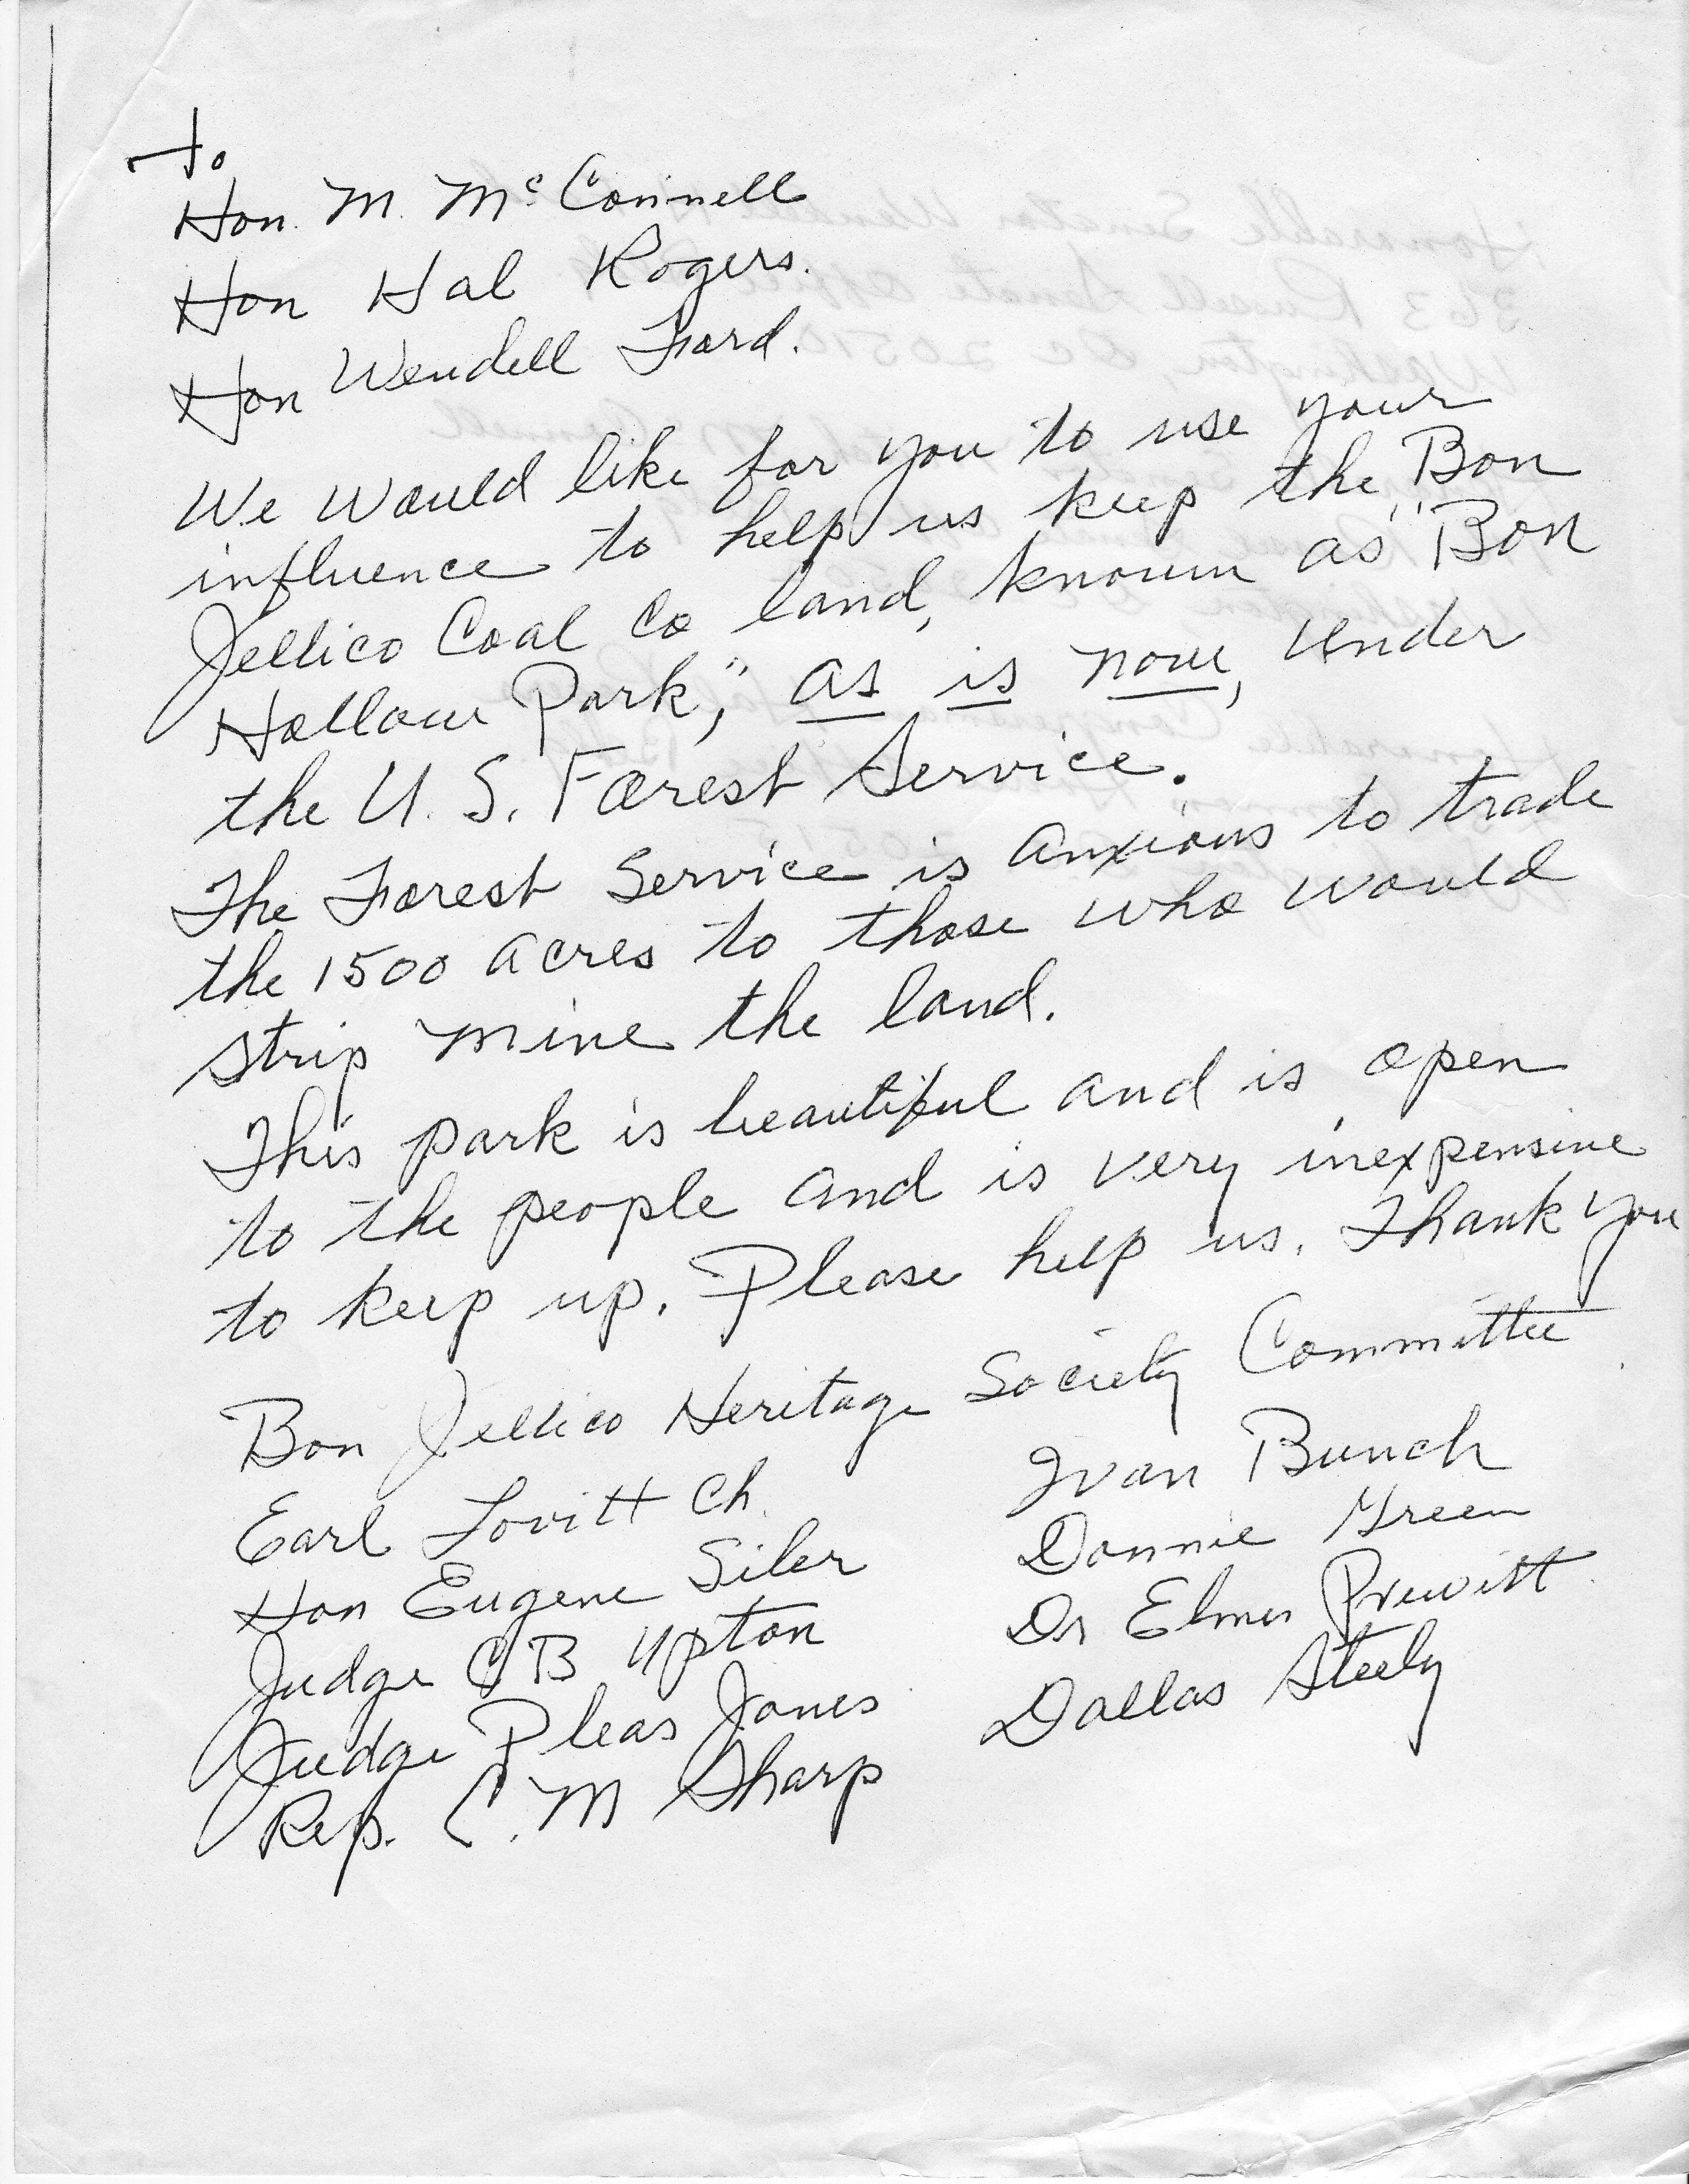 To
Hon. M. McConnell
Hon Hal Rogers.
Hon Wendell Ford.
We would like for you to use your
influence to help us keep the Bon
Jellico Coal Co land, known as "Bon
Hollow Park," as is now, under
the U. S. Forest Service.
The Forest Service is anxious to trade
the 1500 acres to those who would
strip mine the land.
This park is beautiful and is open
to the people and is very inexpensive
to keep up. Please help us. Thank you
Bon Jellico Heritage Society Committee
Earl Lovitt Ch.
Hon Eugene Siler
Judge C B Upton
Judge Pleas Jones
Rep. C. M Sharp
Ivan Bunch
Donnie Green
Dr Elmer Prewitt
Dallas Steely